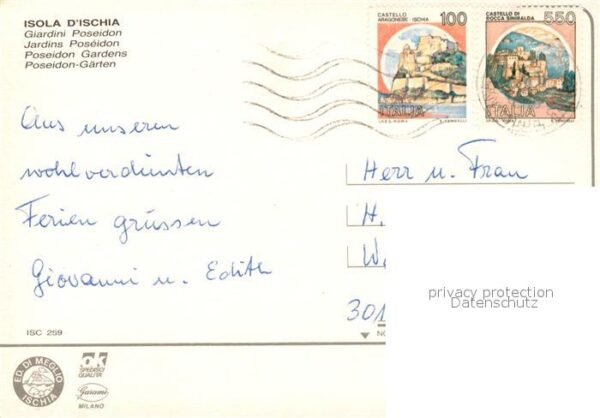 ISOLA D'ISCHIA
Giardini Poseidon
Jardins Poséidon
Poseidon Gardens
Poseidon-Gärten
CASTELLO
ARAGONESE ISCHIA
100
ITALIA
I.P.Z.S. ROMA
CASTELLO DI
ROCCA SINIBALDA
550
ITALIA
Aus unseren
wohlverdienten
Ferien grüssen
Giovanni u. Edith
Herr u. Frau
H.
W
301
privacy protection
Datenschutz
ISC 259
ED. DI MEGLIO
ISCHIA
OK
SPEDISCI
QUALITÀ
Garami
MILANO